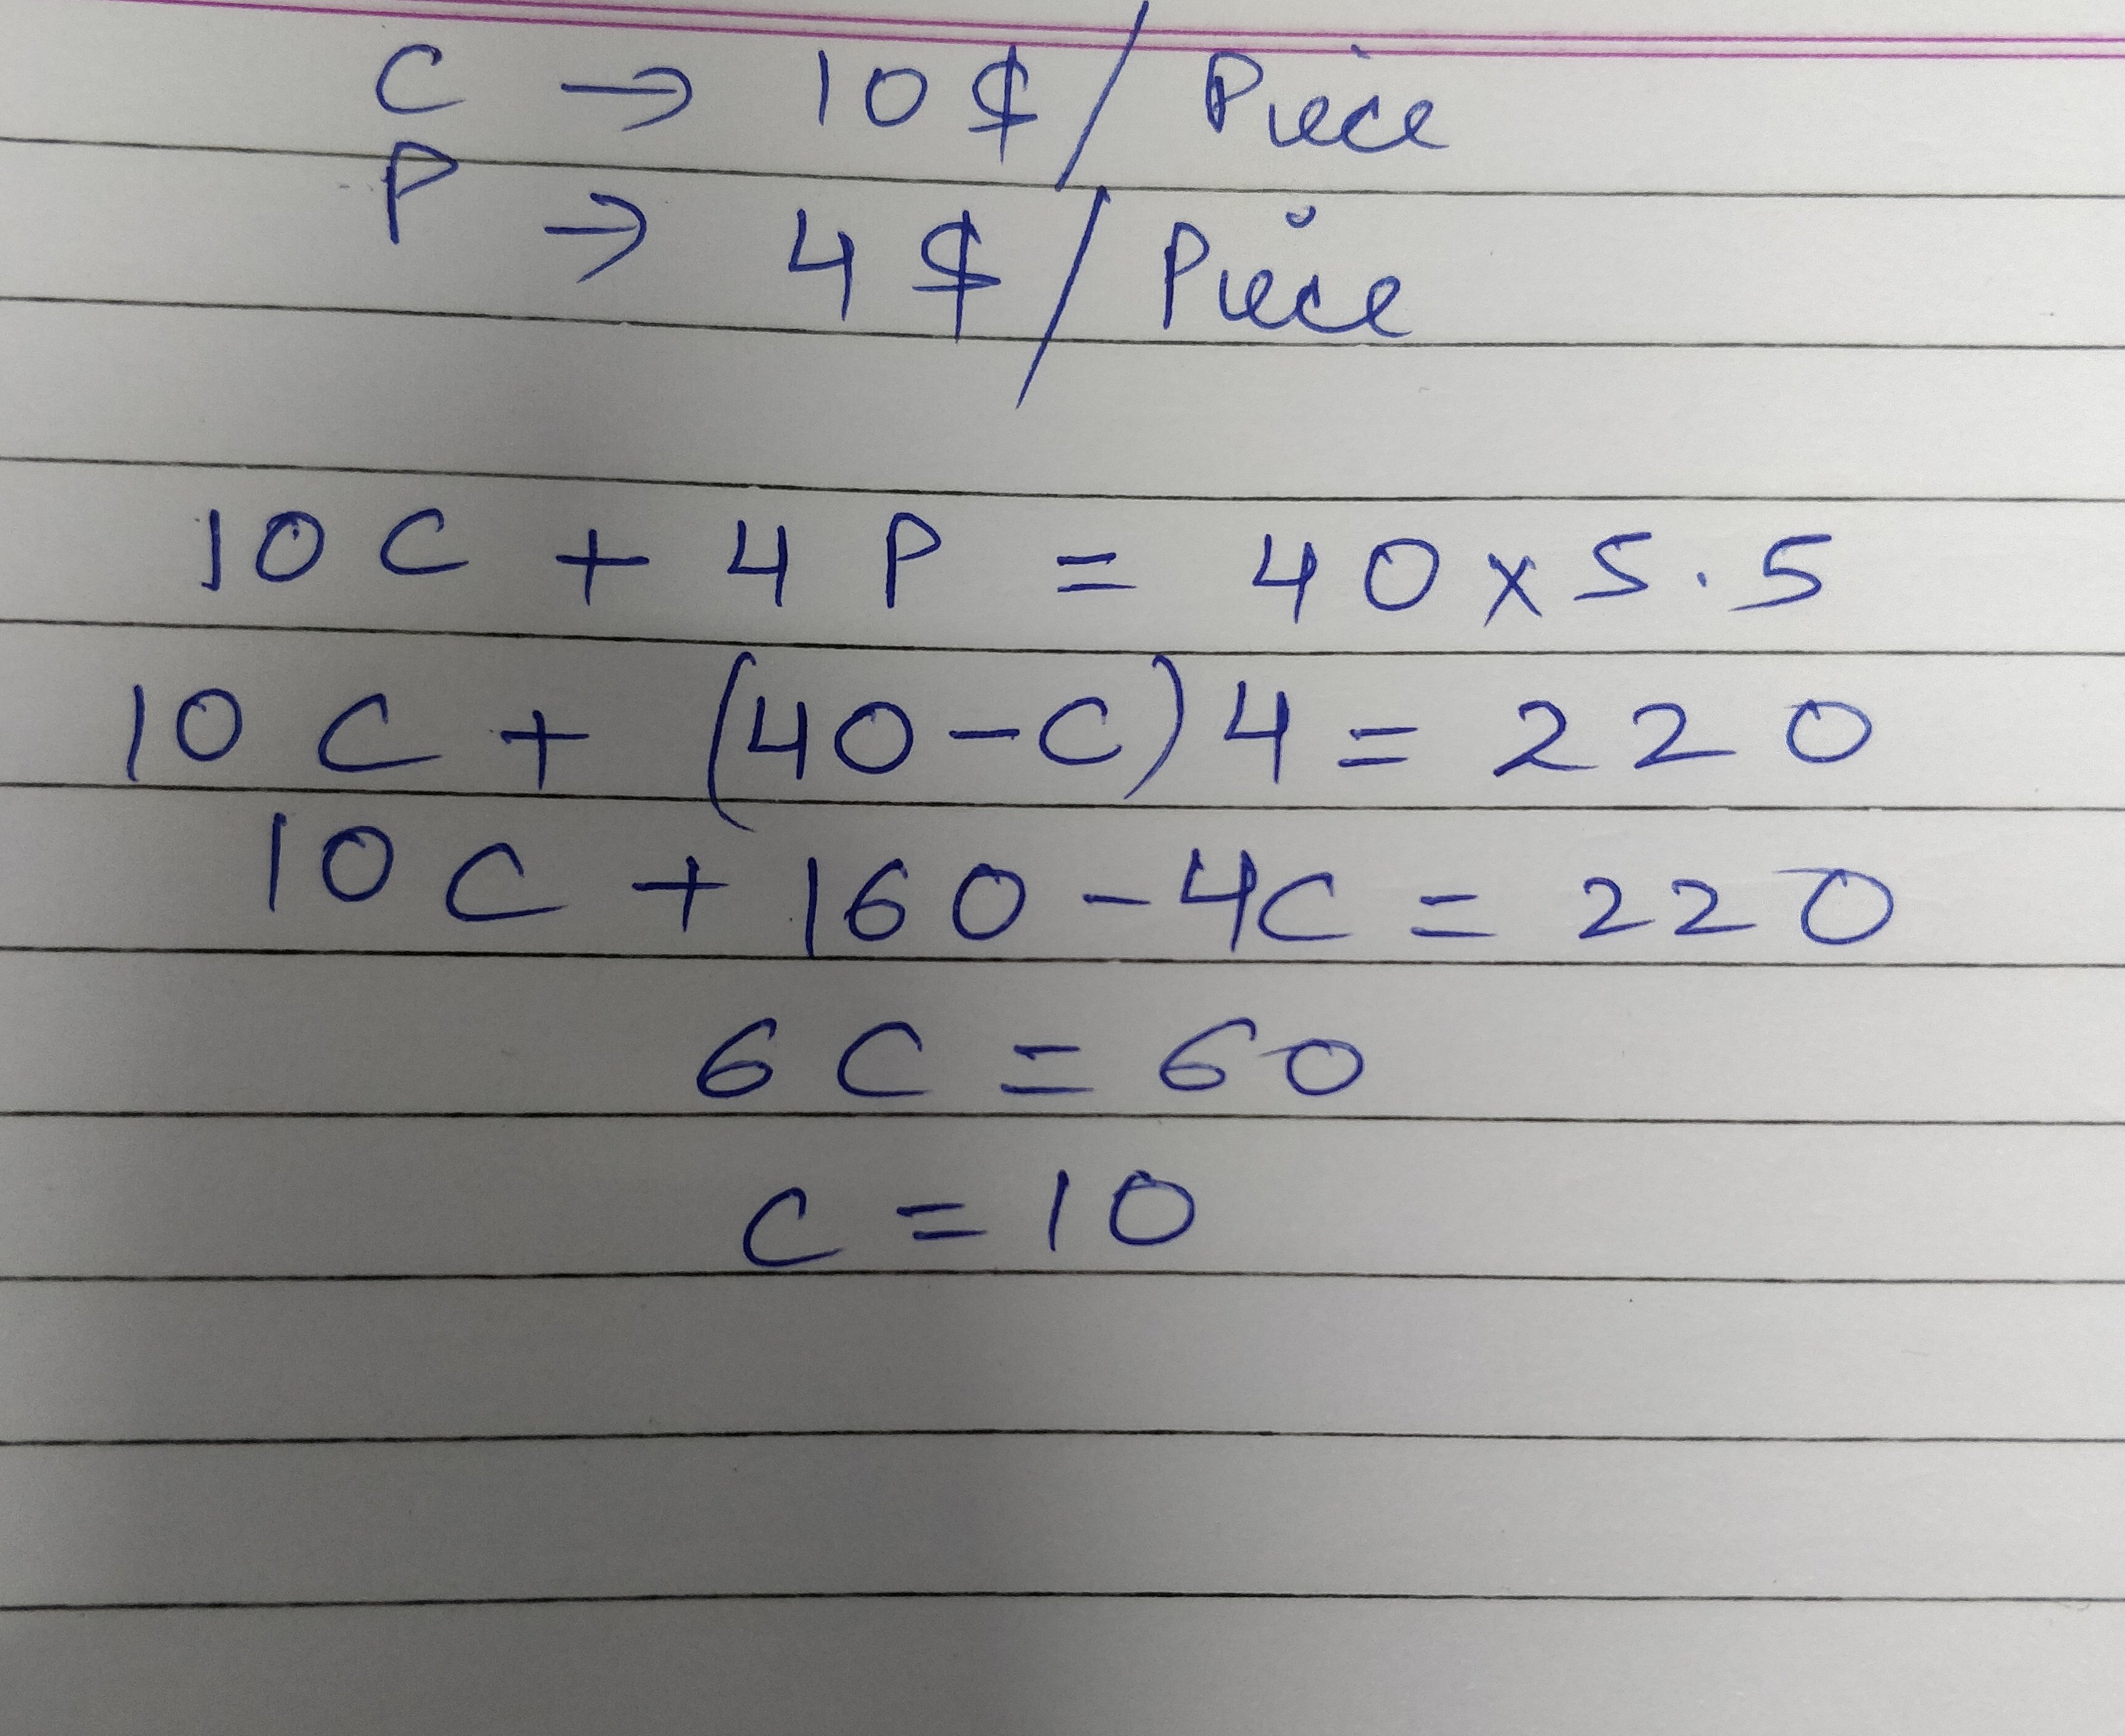 C → 10 $ / Piece
P → 4 $ / Piece
10 C + 4 P = 40 x 5.5
10 C + (40 - C) 4 = 220
10 C + 160 - 4C = 220
6 C = 60
C = 10